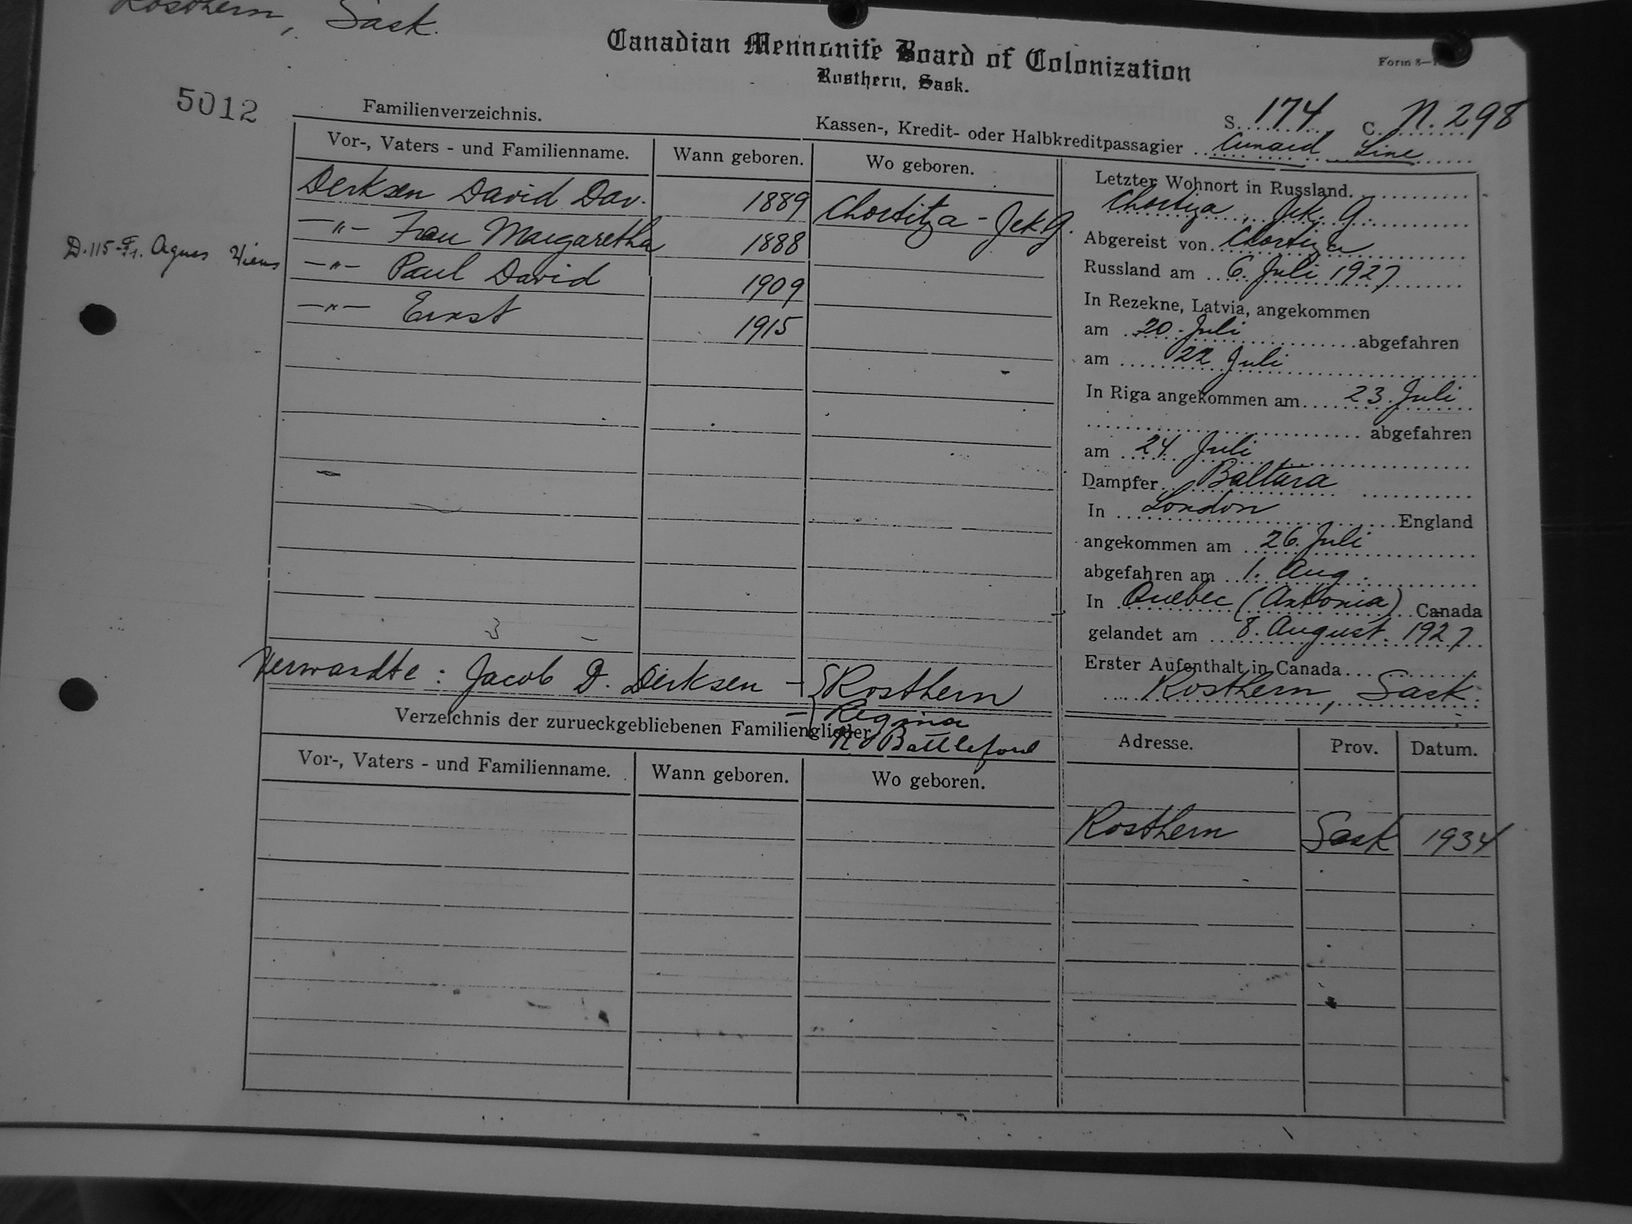 Rosthern, Sask.
Canadian Mennonite Board of Colonization
Rosthern, Sask.
Form 8—
5012
Familienverzeichnis.
S. 174 C. N. 298
Kassen-, Kredit- oder Halbkreditpassagier Cunard Line
Vor-, Vaters - und Familienname. Wann geboren. Wo geboren.
Derksen David Dav. 1889 Chortitza - Jek. G.
—"— Frau Margaretha 1888
D. 115-Fr. Agnes Wiens
—"— Paul David 1909
—"— Ernst 1915
3 —
Verwardte : Jacob D. Derksen — Rosthern
— Regina
N. Battleford
Letzter Wohnort in Russland.
Chortiza, Jek. G.
Abgereist von Chortiza
Russland am 6. Juli 1927
In Rezekne, Latvia, angekommen
am 20. Juli abgefahren
am 22 Juli
In Riga angekommen am 23. Juli
abgefahren
am 24. Juli
Dampfer Baltara
In London England
angekommen am 26. Juli
abgefahren am 1. Aug.
In Quebec (Antonia) Canada
gelandet am 8. August. 1927.
Erster Aufenthalt in Canada
Rosthern, Sask.
Verzeichnis der zurueckgebliebenen Familienglieder
Vor-, Vaters - und Familienname. Wann geboren. Wo geboren.
Adresse. Prov. Datum.
Rosthern Sask 1934